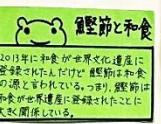 鰹節と和食
2013年に和食が世界文化遺産に
登録されたんだけど鰹節は和食
の源と言われている。つまり、鰹節は和
食が世界遺産に登録されたことに
大きく関係している。